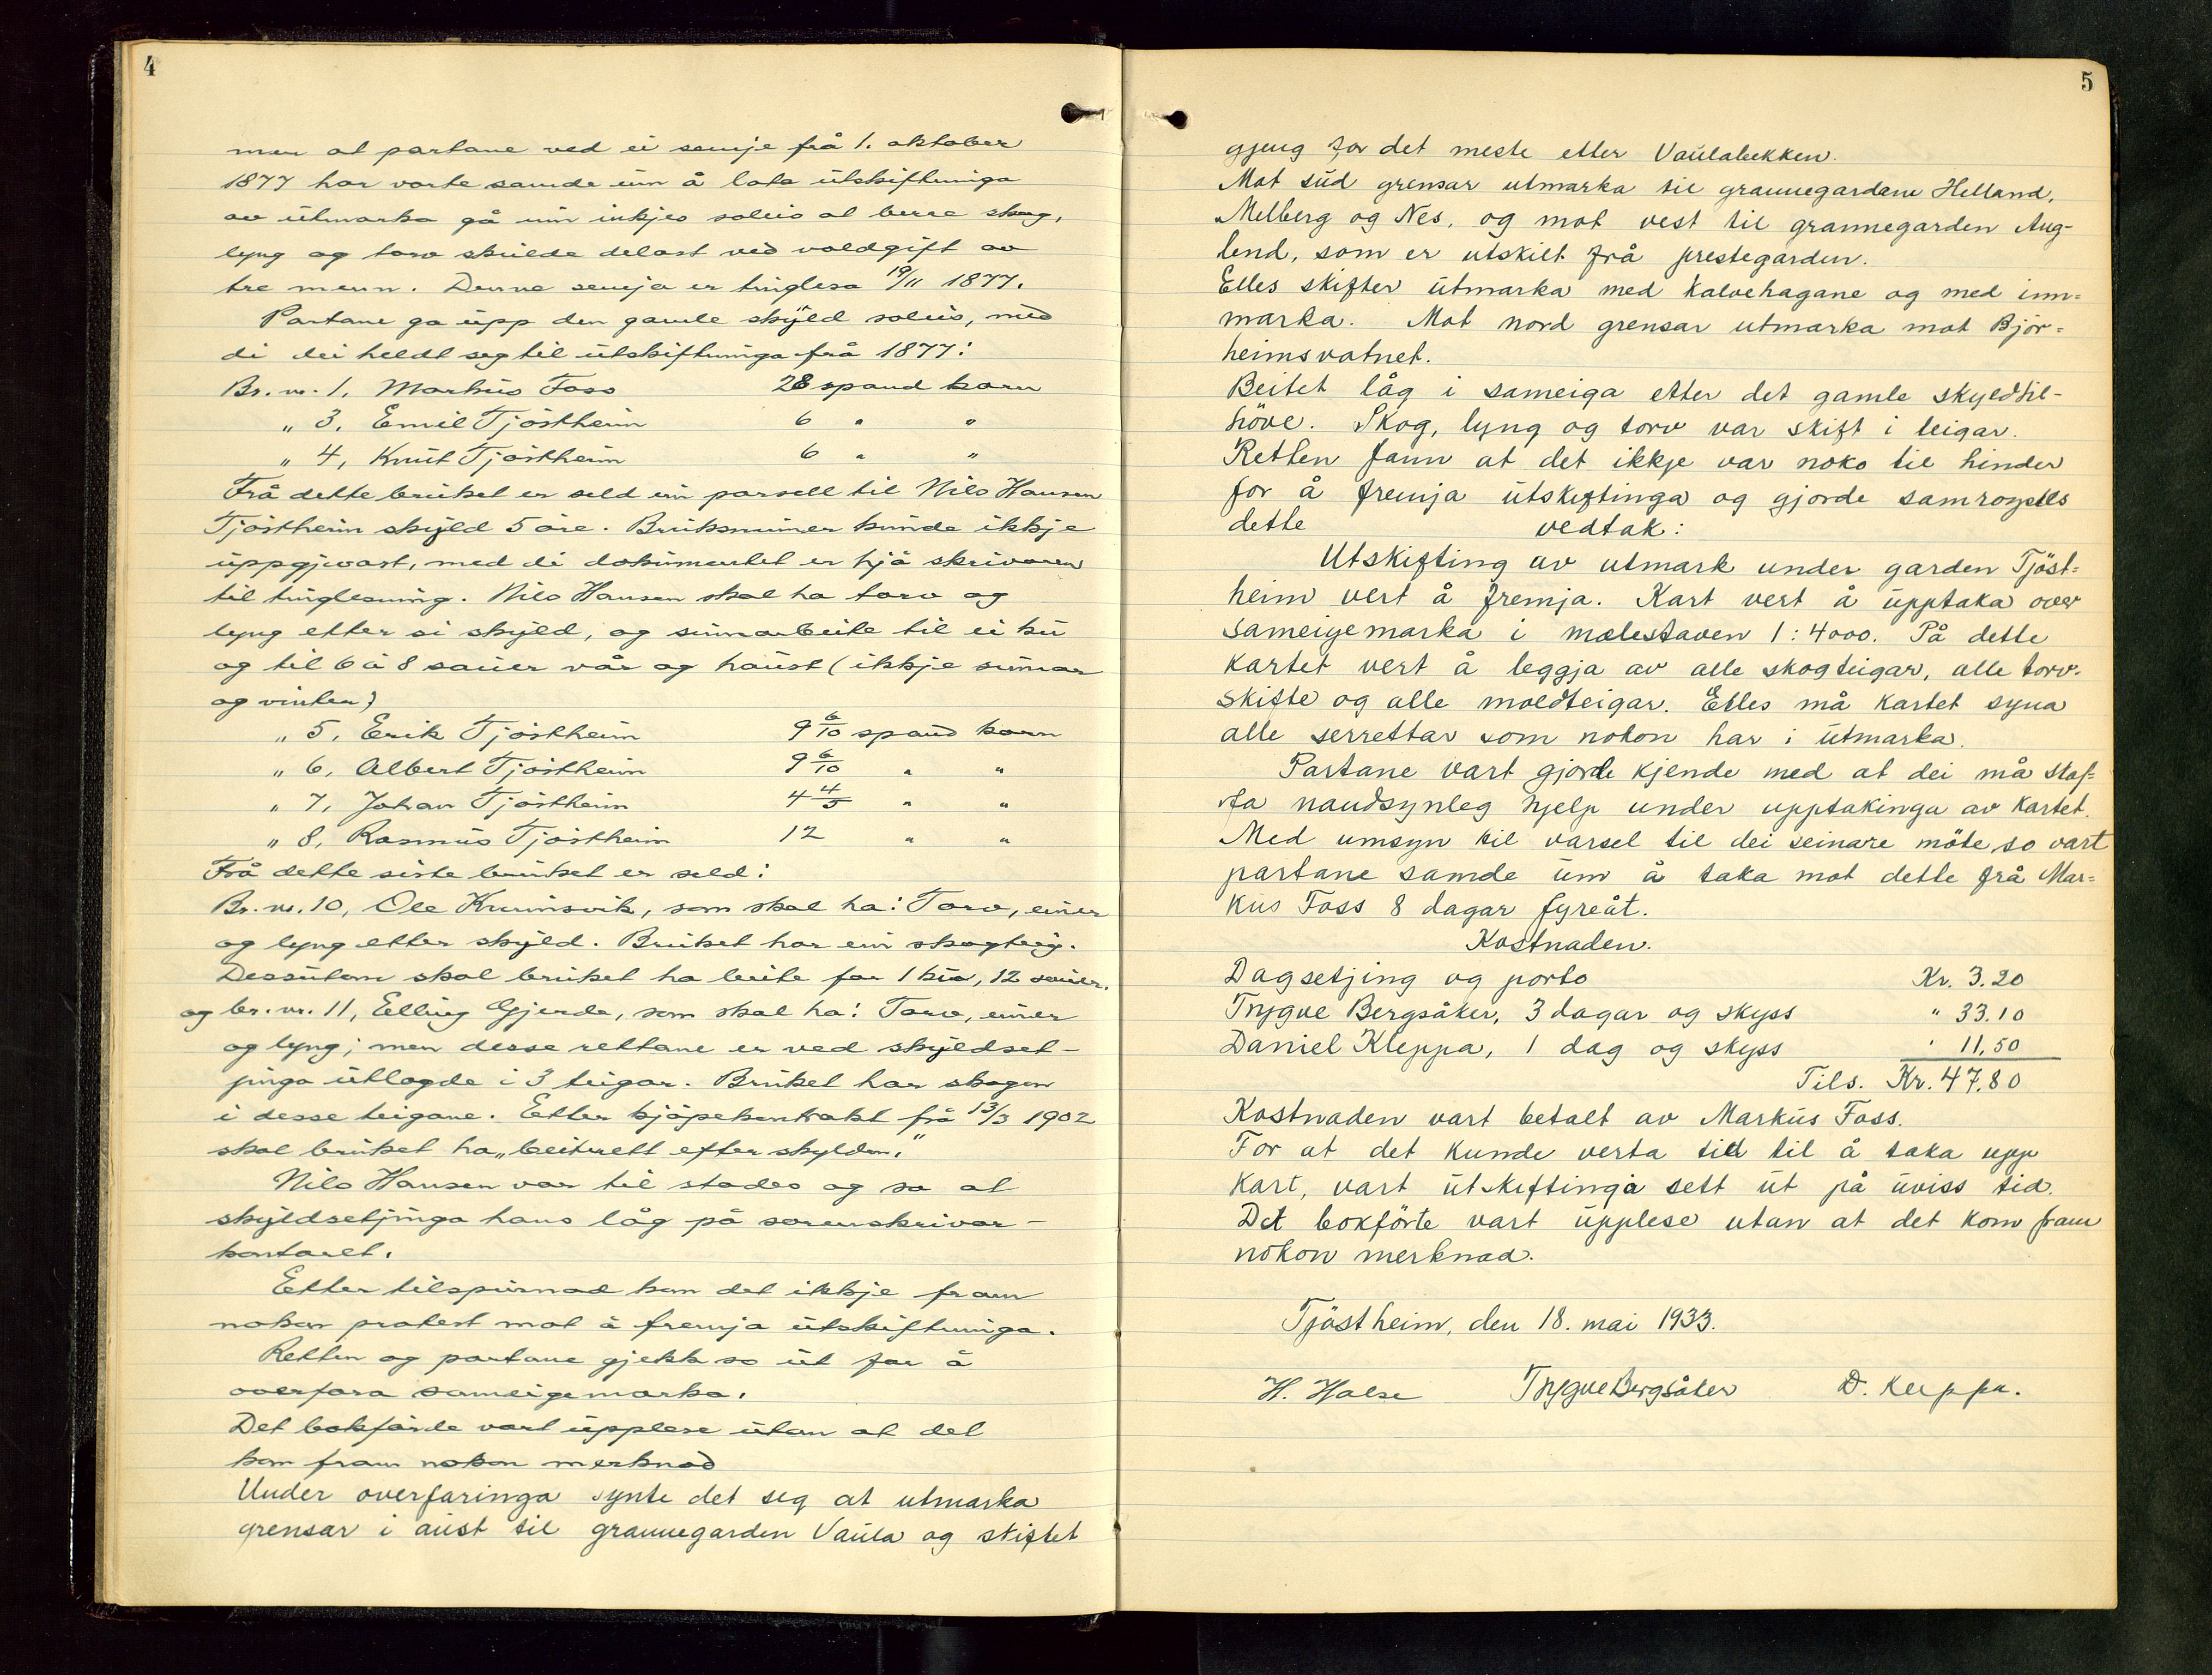 4
men at partane ved ei semje frå 1. oktober
1877 har vorte samde um å lata utskiftninga
av utmarka gå um inkjes soleis at berre skog,
lyng og torv skulde delast ved voldgift av
tre menn. Denne semja er tinglesa 19/11 1877.
Partane ga upp den gamle skyld soleis, med
di dei heldt seg til utskiftninga frå 1877:
Br. nr. 1, Markus Foss 28 spand korn
" 3, Emil Tjöstheim 6 " "
" 4, Knut Tjöstheim 6 " "
Frå dette bruket er seld ein parsell til Nils Hansen
Tjöstheim skyld 5 öre. Bruksnumer kunde ikkje
uppgjevast, med di dokumentet er hjå skrivaren
til tinglesning. Nils Hansen skal ha torv og
lyng etter si skyld, og sumarbeite til ei ku
og til 6 à 8 sauer vår og haust (ikkje sumar
og vinter)
" 5, Erik Tjöstheim 9 6/10 spand korn
" 6, Albert Tjöstheim 9 6/10 " "
" 7, Johan Tjöstheim 4 4/5 " "
" 8, Rasmus Tjöstheim 12 " "
Frå dette siste bruket er seld:
Br. nr. 10, Ole Krumsvik, som skal ha: Torv, einer
og lyng etter skyld. Bruket har ein skogteig.
Dessutom skal bruket ha beite for 1 ku, 12 sauer.
og br. nr. 11, Elling Gjerde, som skal ha: Torv, einer
og lyng; men desse rettane er ved skyldset-
jinga utlagde i 3 teigar. Bruket har skogen
i desse teigane. Etter kjöpekontrakt frå 13/3 1902
skal bruket ha „beiterett efter skylden."
Nils Hansen var til stades og sa at
skyldsetjinga hans låg på sorenskrivar-
kontoret.
Etter tilspurnad kom det ikkje fram
nokon protest mot å fremja utskiftninga.
Retten og partane gjekk so ut for å
overfara sameigemarka.
Det bokförde vart upplese utan at det
kom fram nokon merknad
Under overfaringa synte det seg at utmarka
grensar i aust til grannegarden Vaula og skiftet
5
gjeng for det meste etter Vaulabekken.
Mot sud grensar utmarka til grannegardane Helland,
Melberg og Nes, og mot vest til grannegarden Aug-
lend, som er utskilt frå prestegarden.
Elles skifter utmarka med kalvehagane og med inn=
marka. Mot nord grensar utmarka mot Björ=
heimsvatnet.
Beitet låg i sameiga etter det gamle skyldtil-
höve. Skog, lyng og torv var skift i teigar.
Retten fann at det ikkje var noko til hinder
for å fremja utskiftinga og gjorde samröystes
dette vedtak:
Utskifting av utmark under garden Tjöst=
heim vert å fremja. Kart vert å upptaka over
sameigemarka i målestaven 1:4000. På dette
kartet vert å leggja av alle skogteigar, alle torv-
skifte og alle moldteigar. Elles må kartet syna
alle serrettar som nokon har i utmarka.
Partane vart gjorde kjende med at dei må staf=
fa naudsynleg hjelp under upptakinga av kartet.
Med umsyn til varsel til dei seinare möte, so vart
partane samde um å taka mot dette frå Mar=
kus Foss 8 dagar fyreåt.
Kostnaden.
Dagsetjing og porto Kr. 3.20
Trygve Bergsåker, 3 dagar og skyss " 33.10
Daniel Kleppa, 1 dag og skyss " 11,50
Tils. Kr. 47.80
Kostnaden vart betalt av Markus Foss.
For at det kunde verta tid til å taka upp
kart, vart utskiftinga sett ut på uviss tid.
Det bokförte vart upplese utan at det kom fram
nokon merknad.
Tjöstheim, den 18. mai 1933.
H. Halse Trygve Bergsåker D. Kleppa.